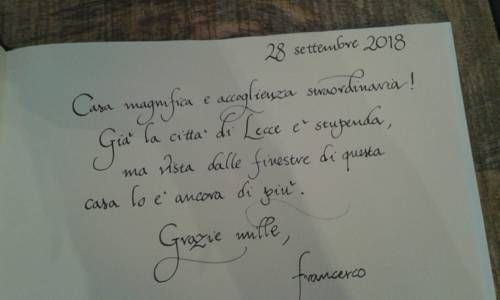 28 settembre 2018
Casa magnifica e accoglienza straordinaria!
Già la citta' di Lecce e' stupenda,
ma vista dalle finestre di questa
casa lo e' ancora di più.
Grazie mille,
francesco